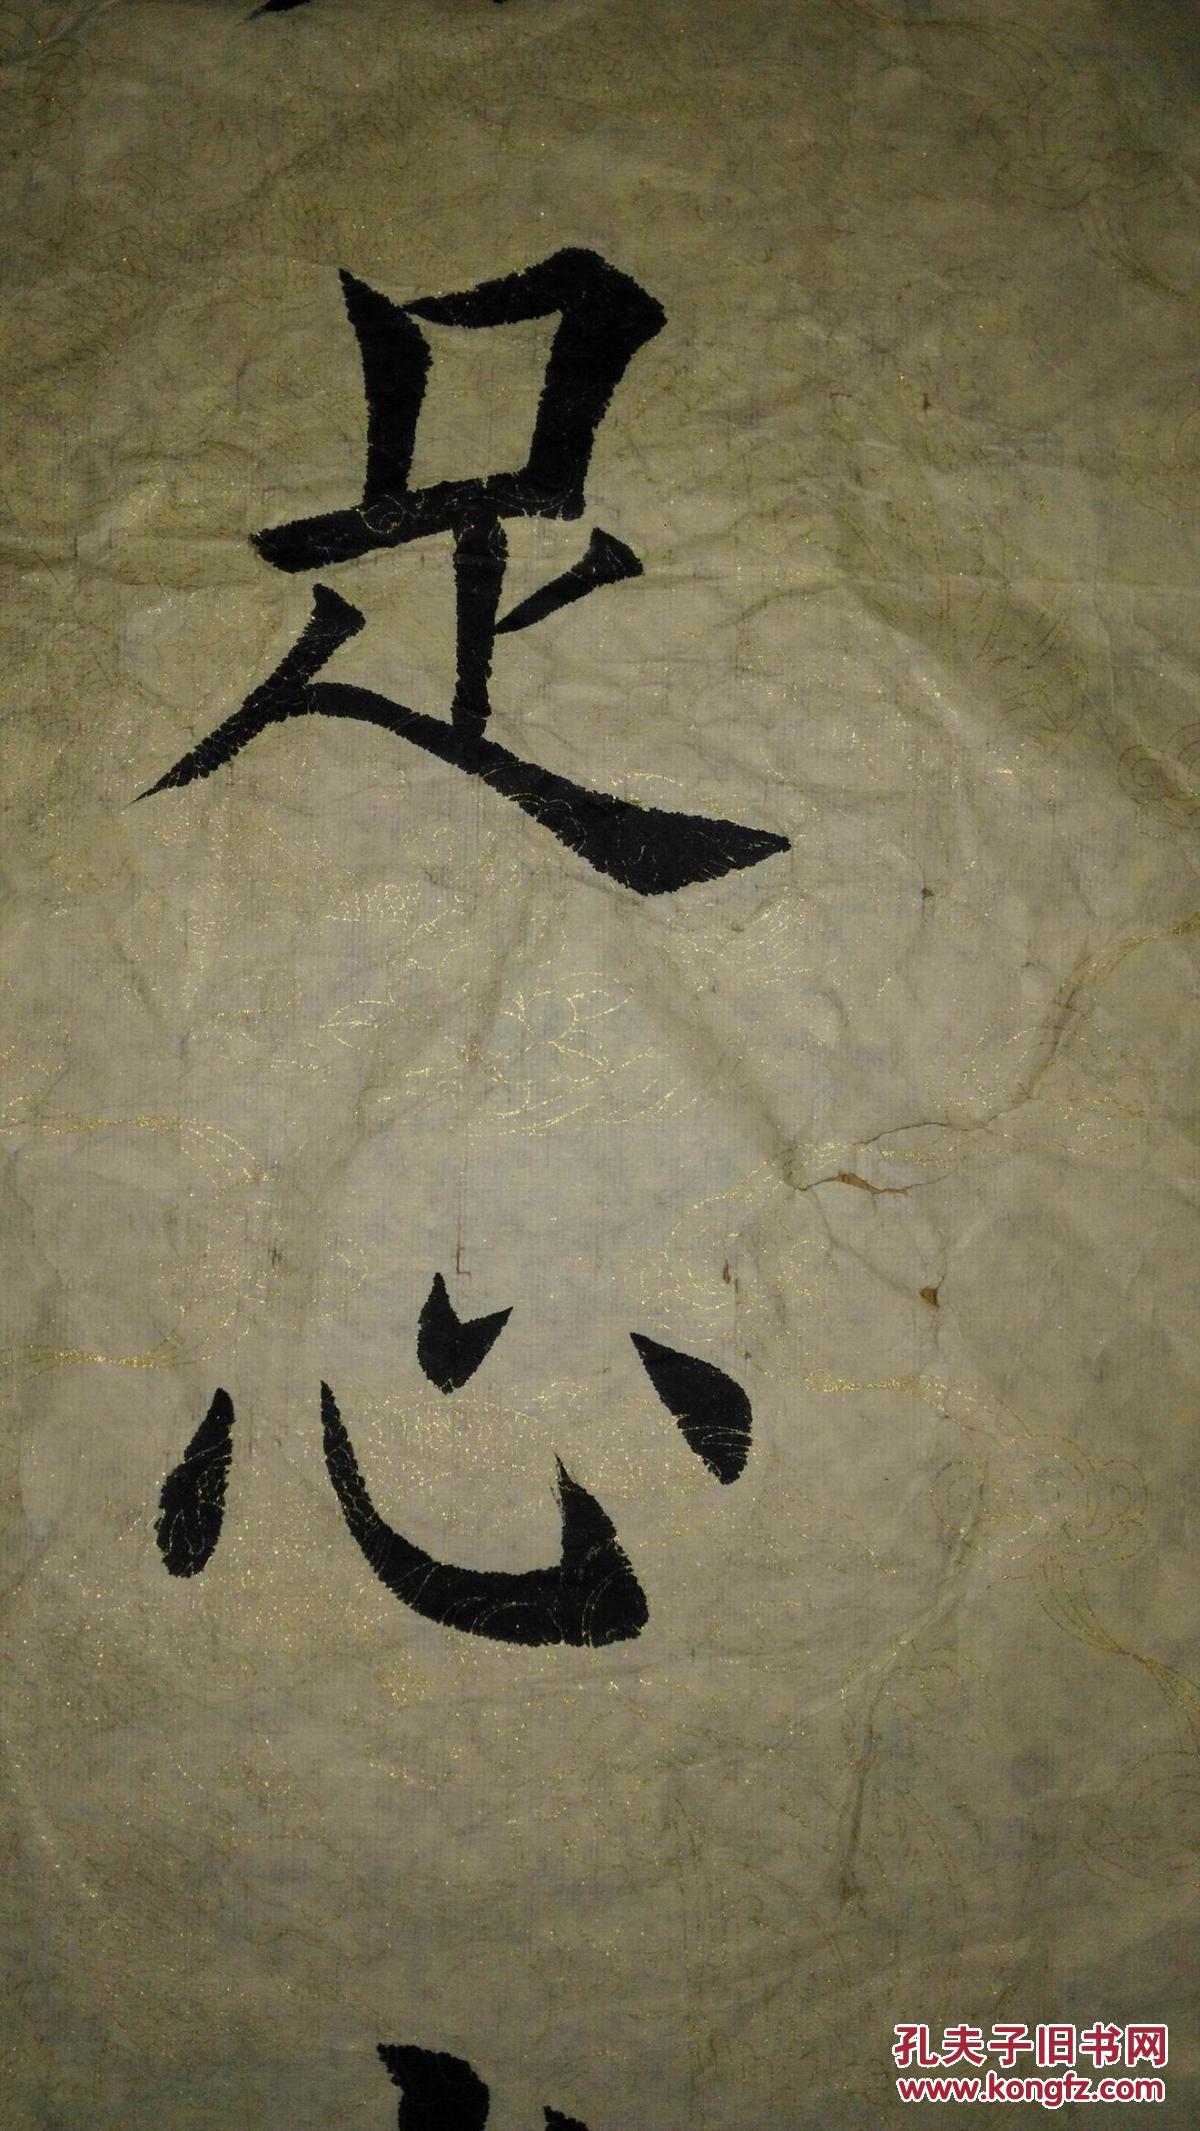 足
心
孔夫子旧书网
www.kongfz.com